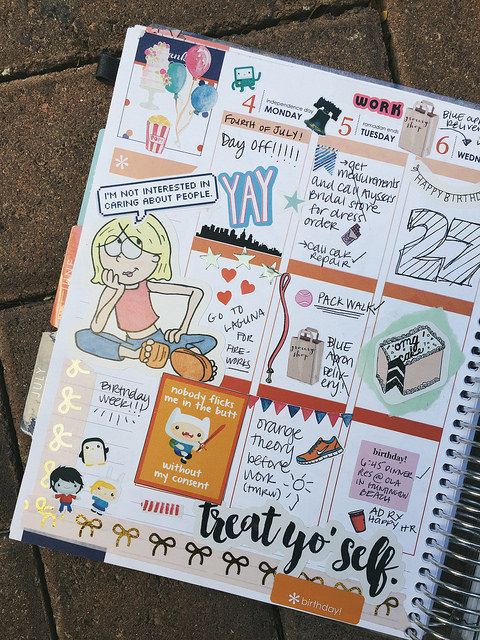 4
independence day
MONDAY
FOURTH OF JULY!
Day off!!!!!
YAY
GO TO
LAGUNA
FOR
FIRE-
WORKS
5
ramadan ends
TUESDAY
WORK
→get
measurements
and call Alyssa's
Bridal store
for dress
order
→Call Car
Repair
PACK WALK
grocery
shop
BLUE
Apron
Delivery!
orange
theory
before
work
(tmrw)
6
WEDN
grocery
shop
BLUE
HAPPY BIRTHD
27
omg
cake
birthday!
6:45 DINNER
RES @ OLA
IN HUNTINGTON
BEACH
AD RY
HAPPY HR
I'M NOT INTERESTED IN
CARING ABOUT PEOPLE.
TIME
JULY
Birthday
week!!!
nobody flicks
me in the butt
without
my consent
treat yo' self.
*birthday!